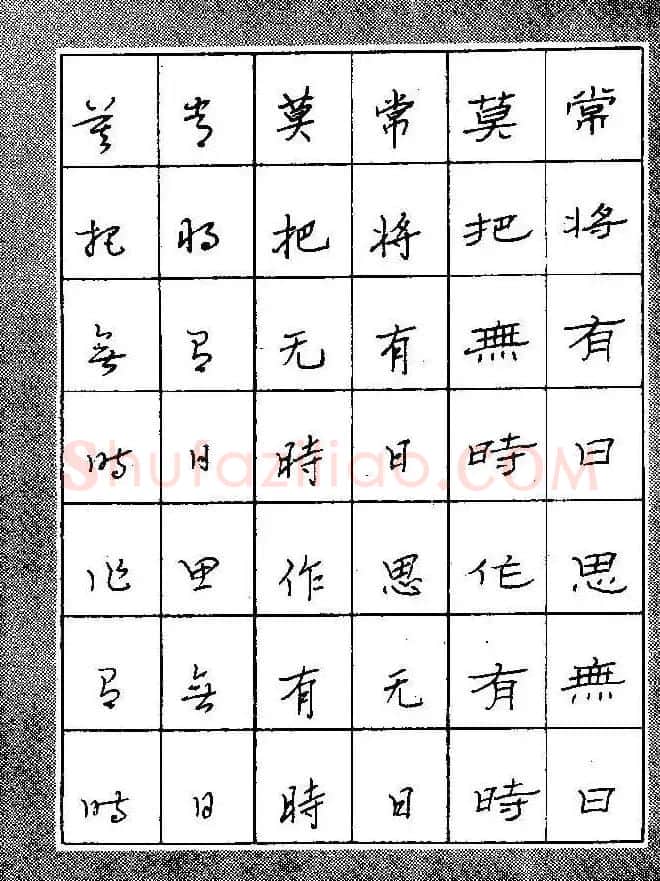 常将有日思無日
莫把無時作有時
常将有日思无日
莫把无時作有時
常将有日思無日
莫把無時作有時
Shufaziliao.COM